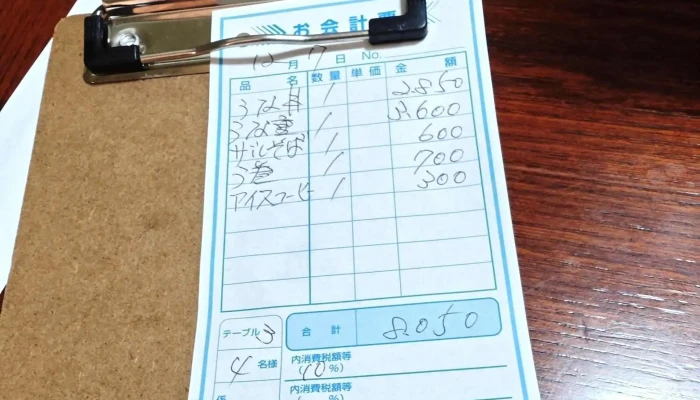 お会計票
12月7日 No.
品名 数量 単価 金額
うな丼 1 2850
うな重 1 3600
ザルそば 1 600
う巻 1 700
アイスコーヒー 1 300
テーブル 3 合計 8050
4名様 内消費税額等
(10%)
内消費税額等
係 (%)